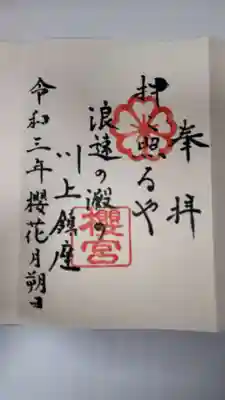 奉拝
押し照るや
浪速の澱の
川上鎮座
櫻宮
令和三年櫻花月朔日